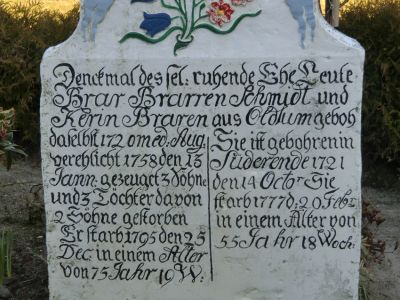 Denckmal des sel. ruhende Ehe Leute
Brar Braren Schmidt und
Kerin Braren aus Oldsum geboh
daselbst 1720 med. Aug.
verehlicht 1758 den 13
Jann: gezeuget 3 Söhne
und 3 Töchter davon
2 Söhne gestorben
Er starb 1795 den 25
Dec in einem Alter
von 75 Jahr 19 W:
Sie ist gebohren in
Süderende 1721
den 14 Octbr Sie
starb 1777 d: 20 Febr
in einem Alter von
55 Jahr 18 Woch.